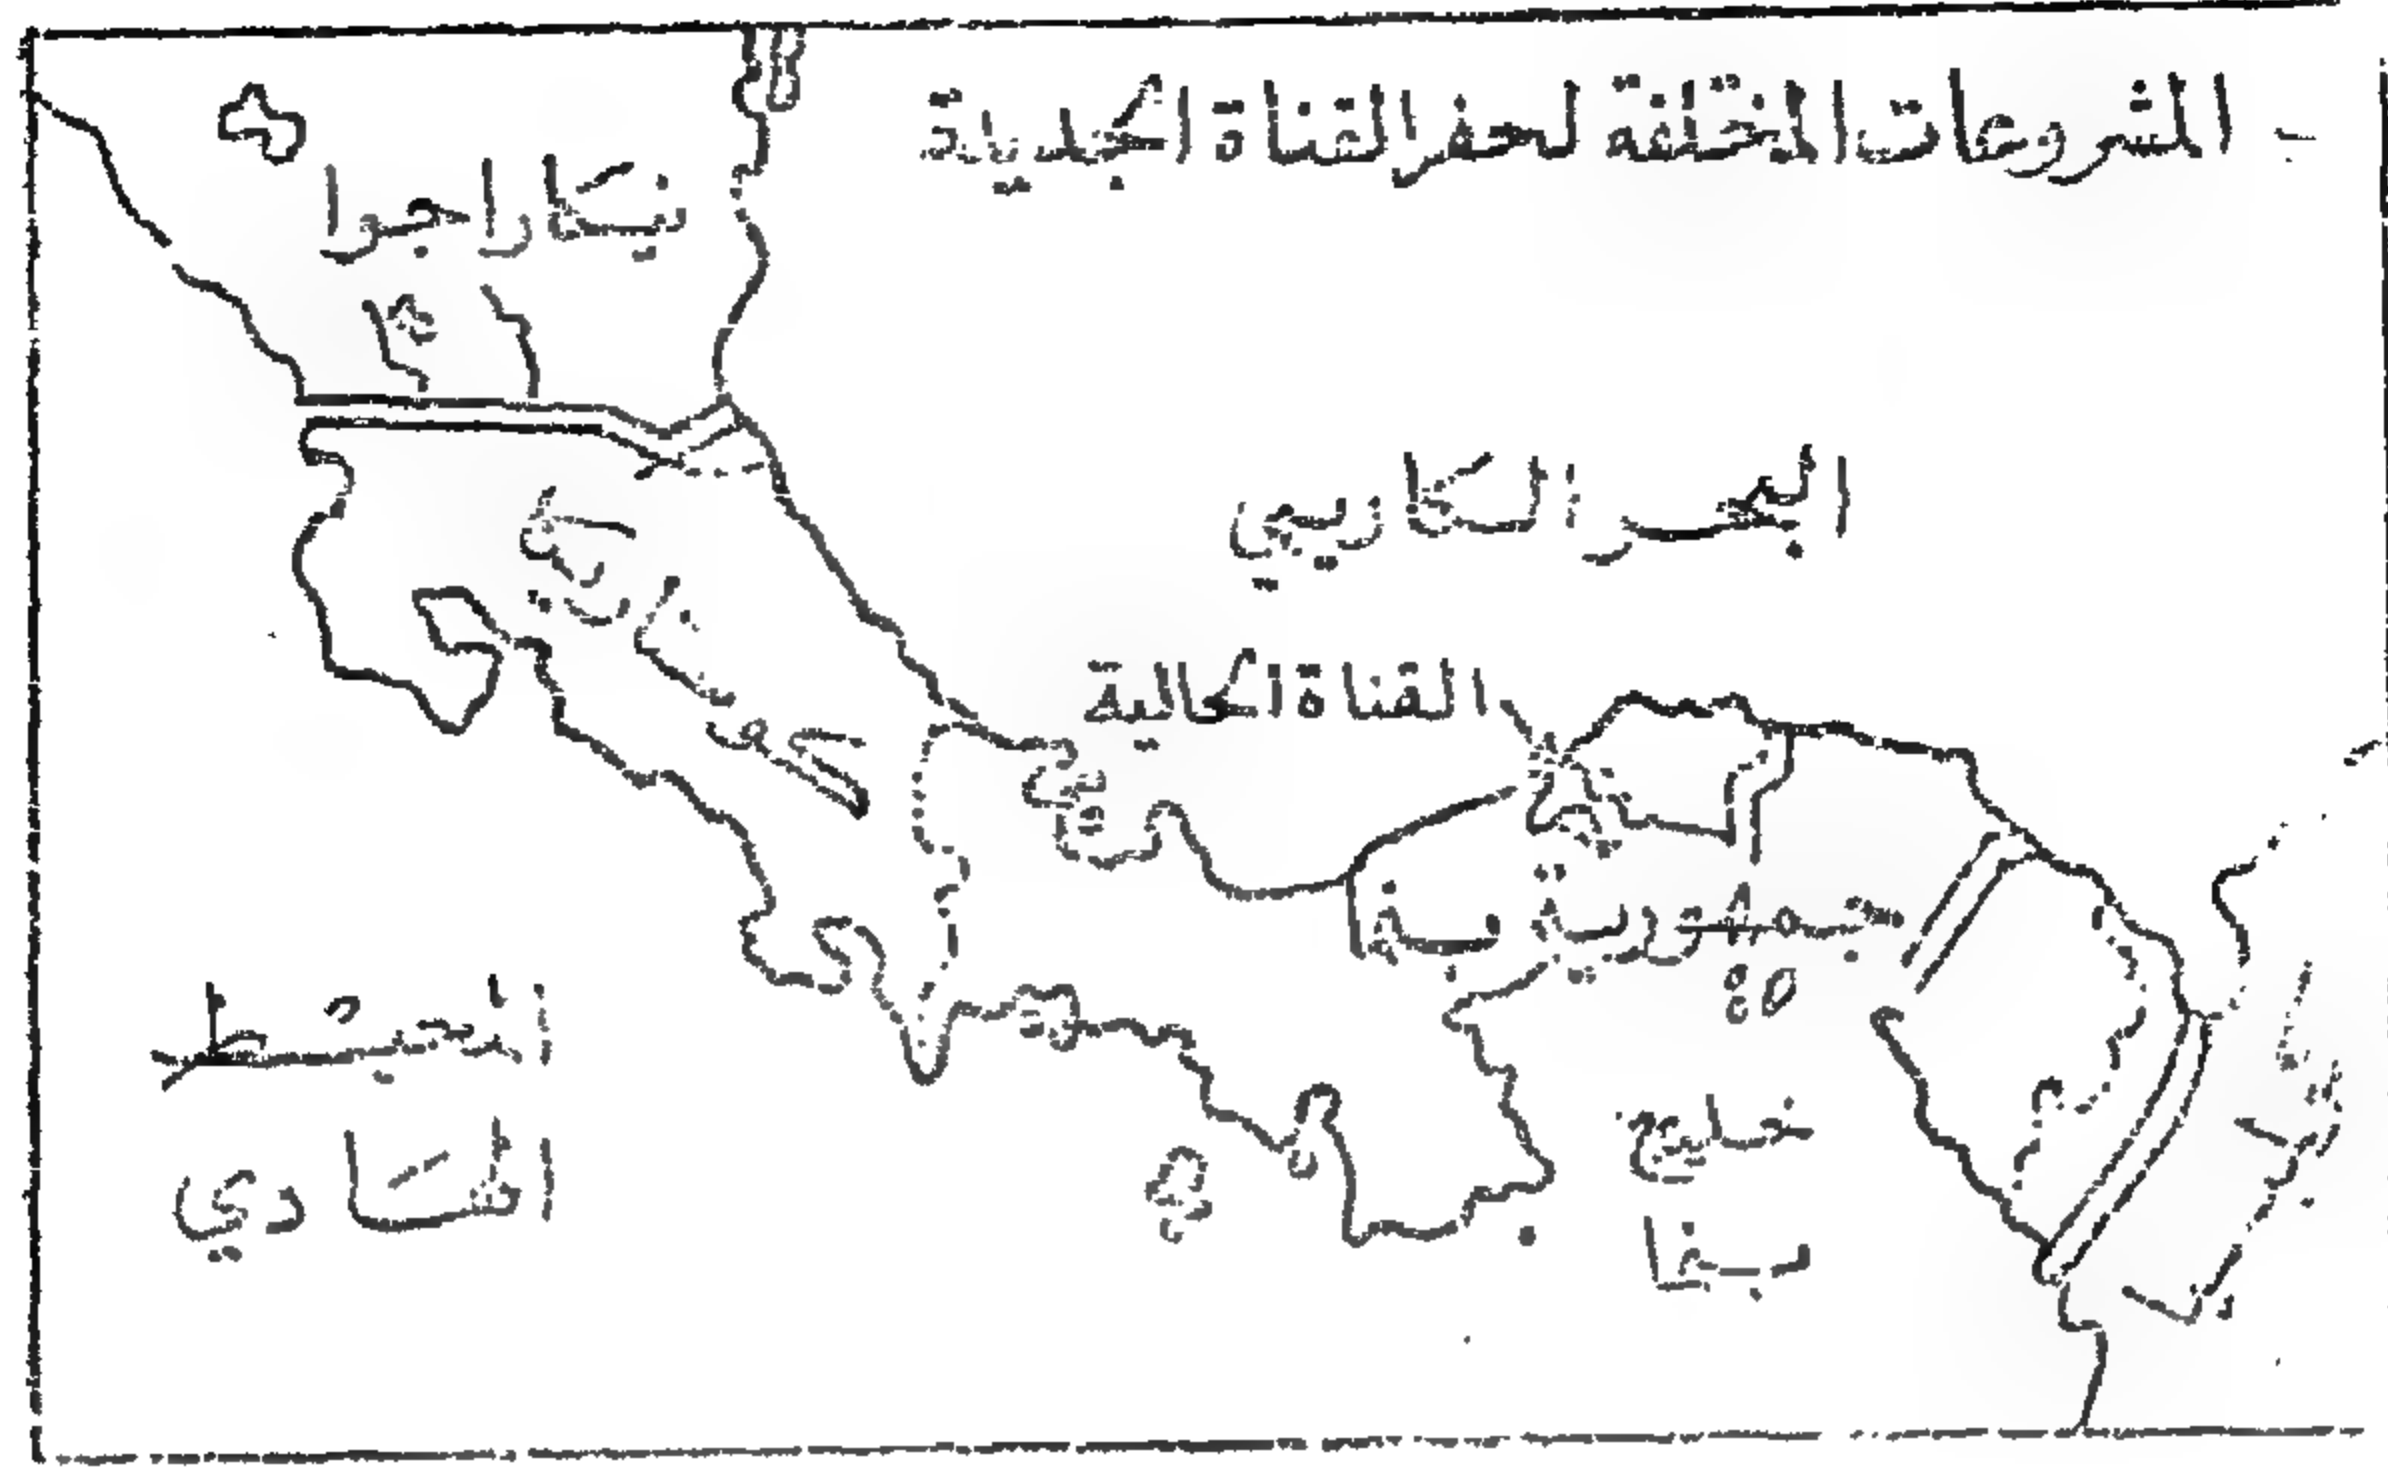 - المشروعات المختلفة لحفر القناة الجديدة
نيكاراجوا
البحر الكاريبي
كوستاريكا
القناة الحالية
جمهورية بنما
المحيط
الهادي
خليج
بنما